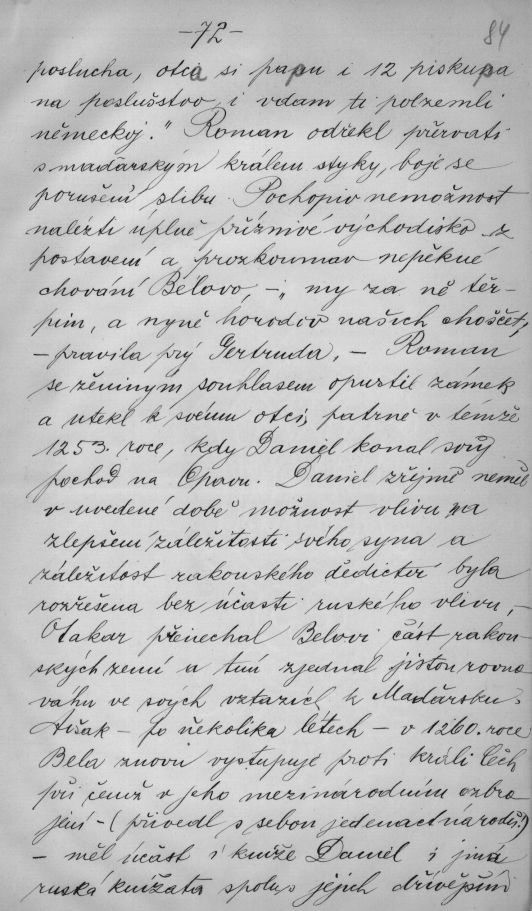 -72-
84
poslucha, otca si papu i 12 piskupa
na poslušstvo i vdam ti polzemli
německoj." Roman odřekl přervati
s maďarským králem styky, boje se
porušení slibu. Pochopiv nemožnost
nalézti úplně příznivé východisko z
postavení a prozkoumav nepěkné
chování Bélovo - „my za ně těr-
pim, a nyně horodov našich choščet,
- pravila prý Gertruda, - Roman
se ženiným souhlasem opustil zámek
a utekl k svému otci, patrně v témže
1253. roce, kdy Daniel konal svůj
pochod na Opavu. Daniel zřejmě neměl
v uvedené době možnost vlivu na
zlepšení záležitosti svého syna a
záležitost rakouského dědictví byla
rozřešena bez účasti ruského vlivu, -
Otakar přenechal Belovi část rakou-
ských zemí a tím zjednal jistou rovno
váhu ve svých vztazích k Maďarsku.
Avšak - po několika létech - v 1260. roce
Bela znovu vystupuje proti králi Čech
při čemž v jeho mezinárodním ozbro
jení - (přivedl s sebou jedenact národů!)
- měl účast i kníže Daniel i jiná
ruská knížata spolu s jejich dřívějšími